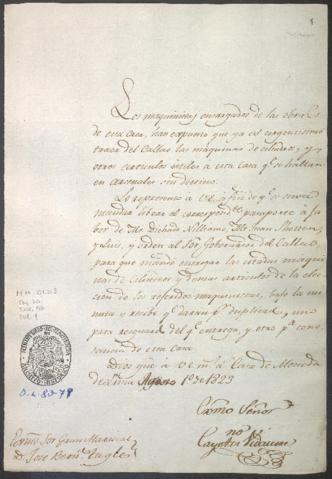 Los maquinistas encargados de las obras
de esta casa, han expuesto que ya es urgentisimo
traer del Callao las maquinas de cilindros, y
otros articulos utiles a esta casa q.e se hallan
en arsenales sin destino.
Lo represento a V.E. a fin de q.e se sirva
mandar librar el correspond.te pasaporte à fa
bor de Mr. Williams, Mr. Juan
y Luis, y orden al Sor. Gobernador del Callao,
para que mande entregar las citadas maqui
nas de cilindros y demas articulos de la elec
cion de los referidos maquinistas, bajo la mi
nuta y recibo q.e daran p.r duplicado, uno
para resguardo del q.e entrega, y otro p.a cons
tancia de esta casa.
Dios gue à V.E. m.s a.s Casa de Moneda
de Lima Agosto 1.o de 1823
Exmo Señor
Cayet.no Vidaurre
Exmo Sor Gran Mariscal
D. Jose Bern.do Tagle
O.L. 80-78